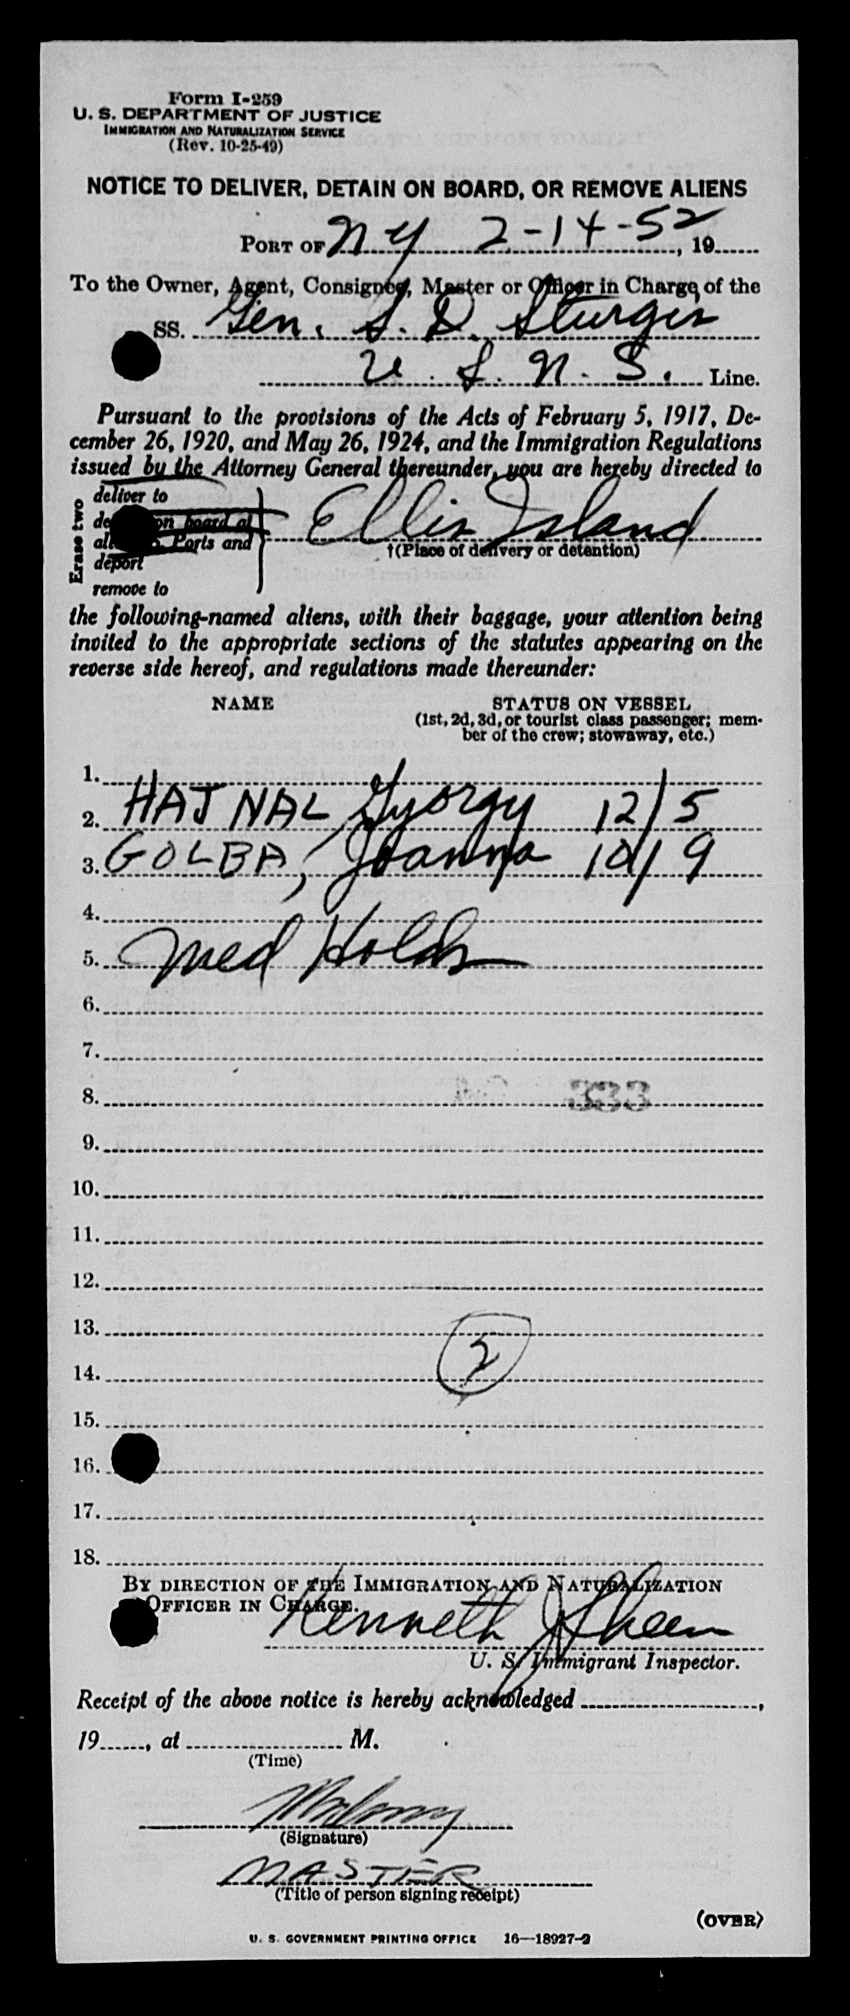 Form I-259
U. S. DEPARTMENT OF JUSTICE
IMMIGRATION AND NATURALIZATION SERVICE
(Rev. 10-25-49)
NOTICE TO DELIVER, DETAIN ON BOARD, OR REMOVE ALIENS
PORT OF NY 2-14-52, 19
To the Owner, Agent, Consignee, Master or Officer in Charge of the
SS. Gen. S. D. Sturgis
U. S. N. S. Line.
Pursuant to the provisions of the Acts of February 5, 1917, De-
cember 26, 1920, and May 26, 1924, and the Immigration Regulations
issued by the Attorney General thereunder, you are hereby directed to
Erase two
deliver to
on board at
Ports and
deport
remove to
Ellis Island
†(Place of delivery or detention)
the following-named aliens, with their baggage, your attention being
invited to the appropriate sections of the statutes appearing on the
reverse side hereof, and regulations made thereunder:
NAME STATUS ON VESSEL
(1st, 2d, 3d, or tourist class passenger; mem-
ber of the crew; stowaway, etc.)
1.
2. HAJNAL, Gyorgy 12/5
3. GOLBA, Joanna 10/9
4.
5. Med Holds
6.
7.
8. 333
9.
10.
11.
12.
13.
14. 2
15.
16.
17.
18.
BY DIRECTION OF THE IMMIGRATION AND NATURALIZATION
OFFICER IN CHARGE.
Kenneth J Sheen
U. S. Immigrant Inspector.
Receipt of the above notice is hereby acknowledged ,
19 , at M.
(Time)
(Signature)
MASTER
(Title of person signing receipt)
(OVER)
U. S. GOVERNMENT PRINTING OFFICE 16—18927-2